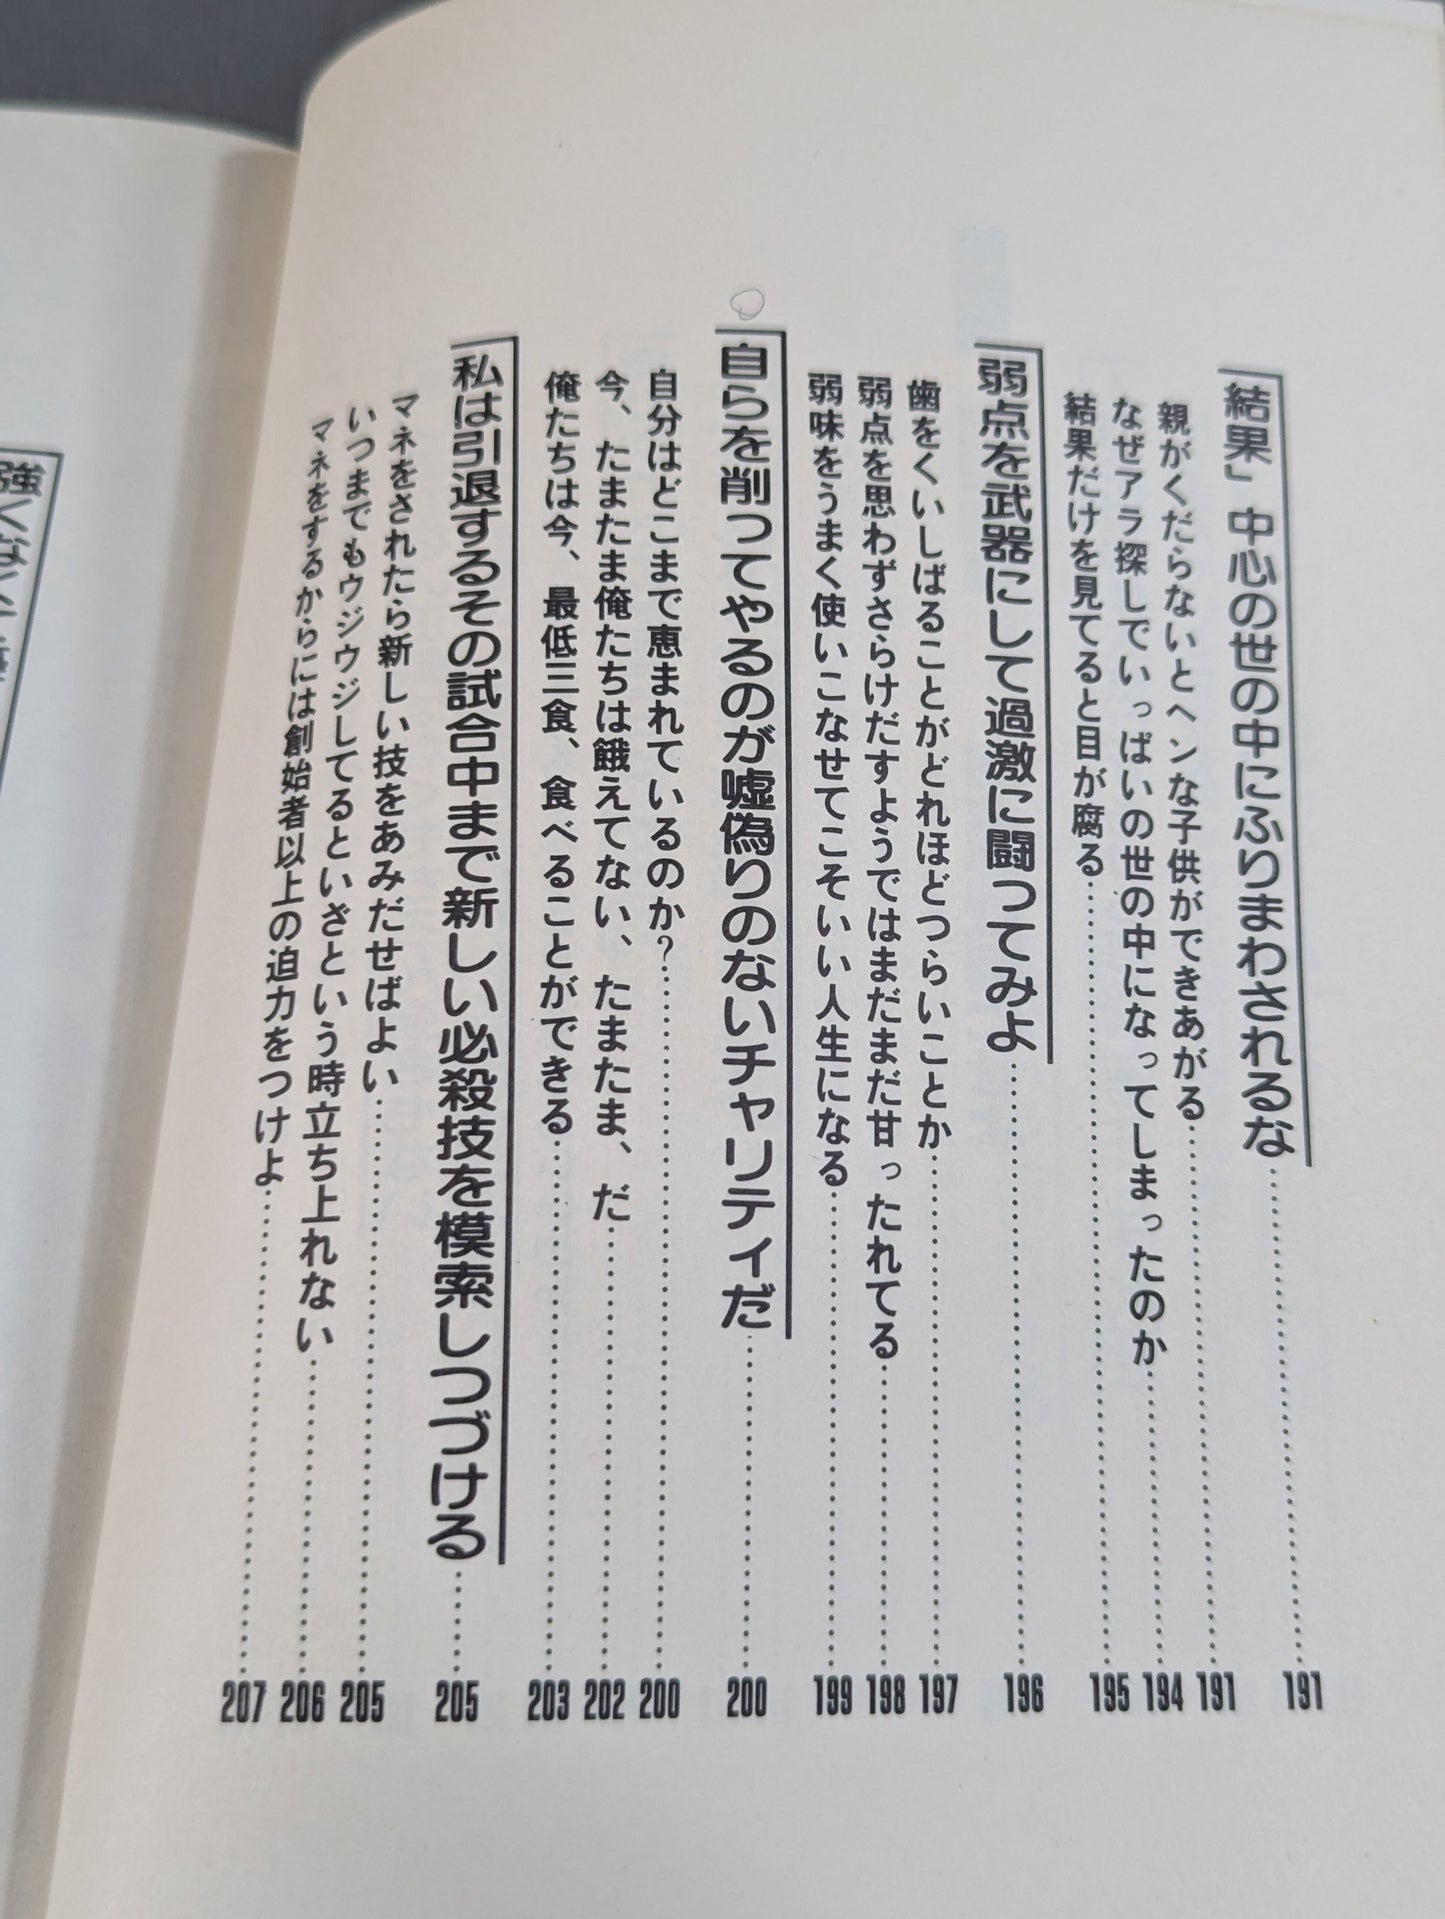 結果」中心の世の中にふりまわされるな……191
親がくだらないとヘンな子供ができあがる……191
なぜアラ探しでいっぱいの世の中になってしまったのか……194
結果だけを見てると目が腐る……195
弱点を武器にして過激に闘ってみよ……196
歯をくいしばることがどれほどつらいことか……197
弱点を思わずさらけだすようではまだまだ甘ったれてる……198
弱味をうまく使いこなせてこそいい人生になる……199
自らを削ってやるのが嘘偽りのないチャリティだ……200
自分はどこまで恵まれているのか?……200
今、たまたま俺たちは餓えてない、たまたま、だ……202
俺たちは今、最低三食、食べることができる……203
私は引退するその試合中まで新しい必殺技を模索しつづける……205
マネをされたら新しい技をあみだせばよい……205
いつまでもウジウジしてるといざという時立ち上れない……206
マネをするからには創始者以上の迫力をつけよ……207
強くなく